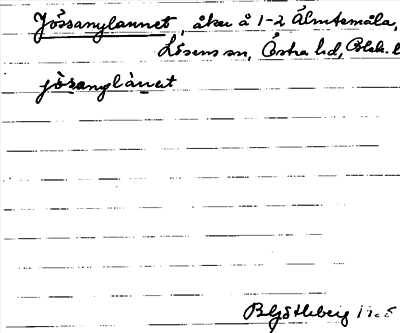 Jössanylannet, åker å 1-2 Älmtemåla,
Lösens sn, Östra hd, Blek. l
jösanylànẹt
B Götleberg